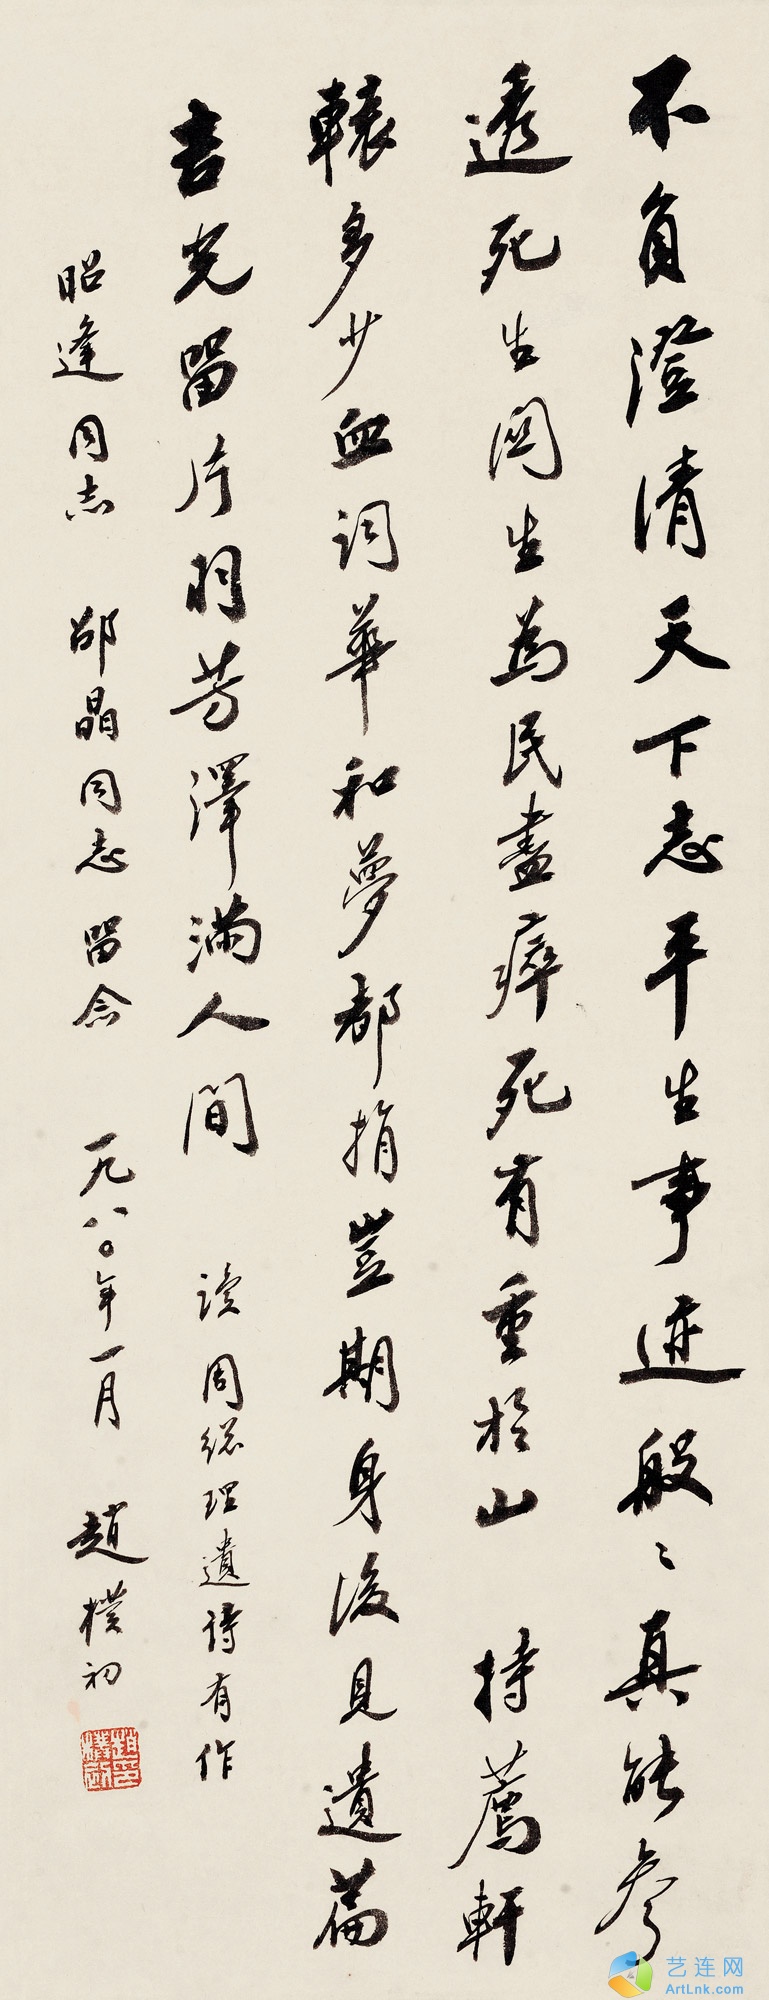 不負澄清天下志平生事迹般〻真能參
透死生関生為民盡瘁死有重於山 持薦軒
轅多少血詞華和夢都捐豈期身後見遺篇
吉光留片羽芳澤滿人間 读周総理遺詩有作
昭逢同志 邵晶同志留念 一九八〇年一月 趙樸初
趙樸初印
艺连网
ArtLnk.com